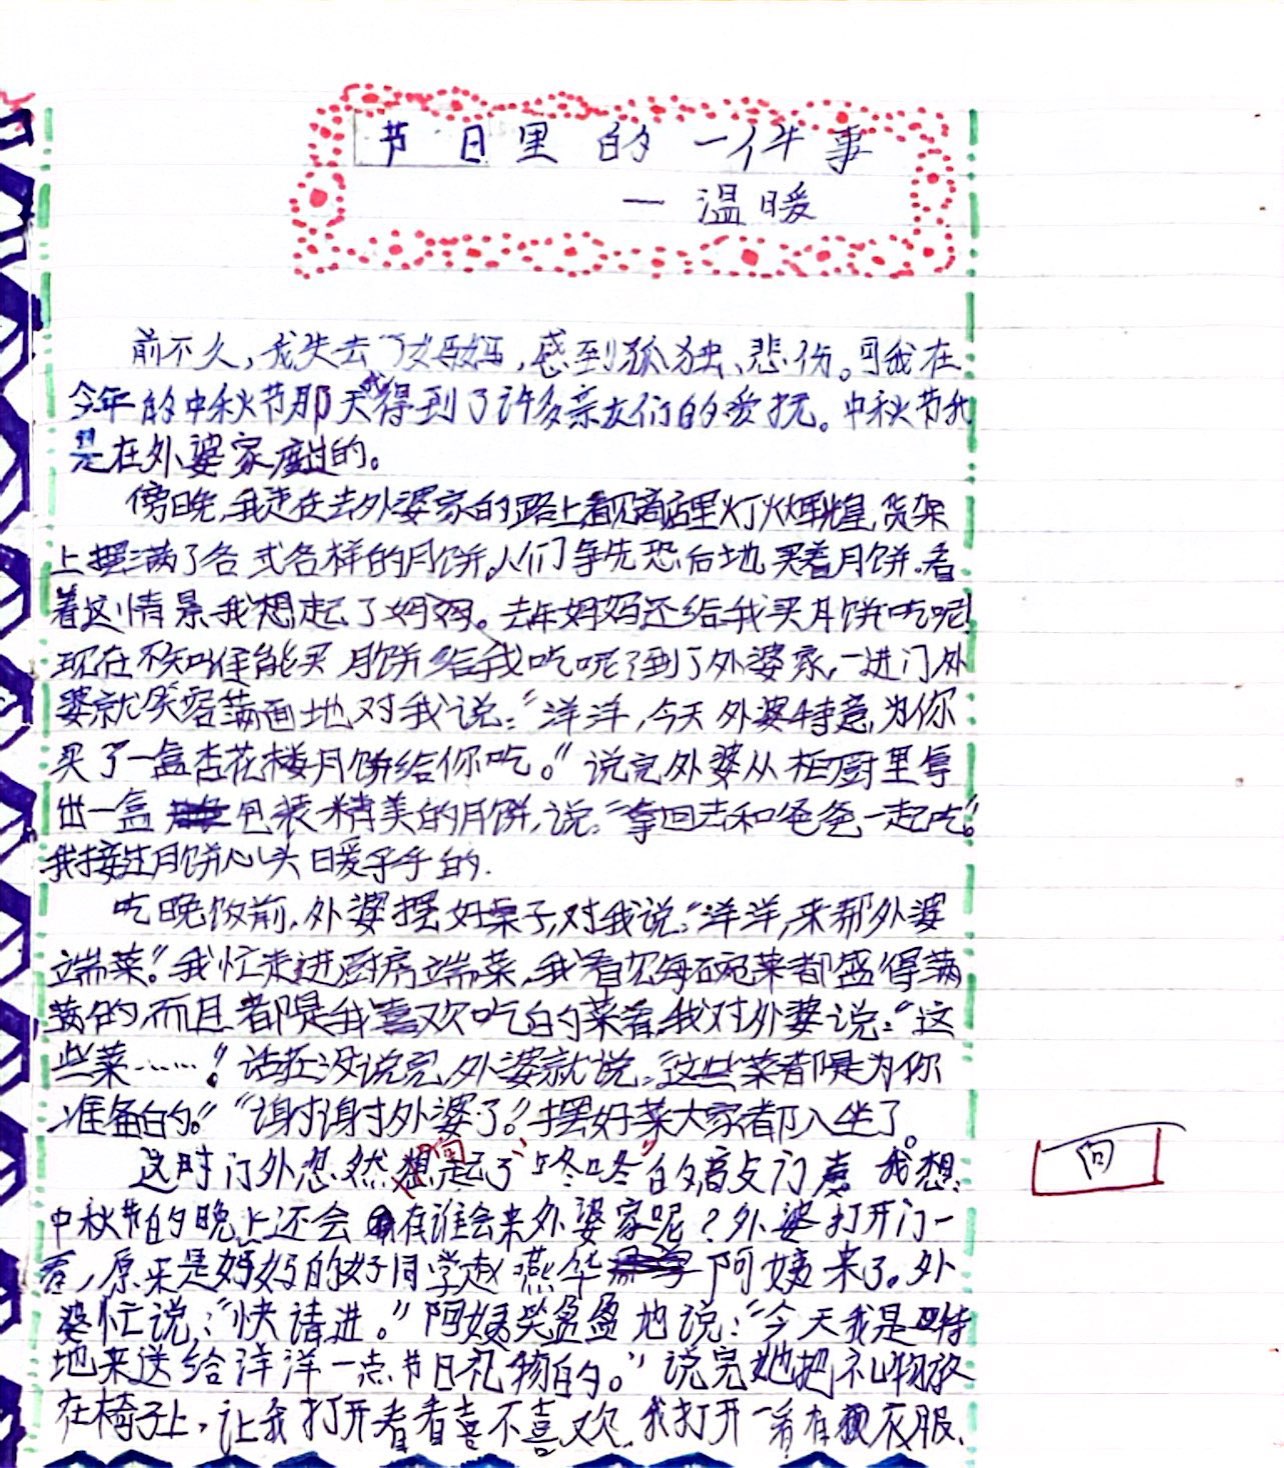 节日里的一件事
—温暖
前不久，我失去了妈妈，感到孤独、悲伤。可我在
今年的中秋节那天我得到了许多亲友们的爱抚。中秋节我
是在外婆家度过的。
傍晚，我走在去外婆家的路上看见商店里灯火辉煌，货架
上摆满了各式各样的月饼。人们争先恐后地买着月饼。看
着这情景我想起了妈妈。去年妈妈还给我买月饼吃呢！
现在不知谁能买月饼给我吃呢？到了外婆家，一进门外
婆就笑容满面地对我说：“洋洋，今天外婆特意为你
买了一盒杏花楼月饼给你吃。”说完外婆从柜厨里拿
出一盒包装精美的月饼，说：“拿回去和爸爸一起吃。”
我接过月饼心头暖乎乎的.
吃晚饭前，外婆摆好桌子，对我说：“洋洋，来帮外婆
端菜。”我忙走进厨房端菜，我看见每碗菜都盛得满
满的，而且都是我喜欢吃的菜肴，我对外婆说：“这
些菜……！”话还没说完，外婆就说：“这些菜都是为你
准备的。”“谢谢外婆了。”摆好菜大家都入坐了。
这时门外忽然响起了“咚咚”的敲门声 我想：
向
中秋节的晚上还会有谁会来外婆家呢？外婆打开门一
看，原来是妈妈的好同学赵燕华阿姨来了。外
婆忙说：“快请进。”阿姨笑盈盈地说：“今天我是特
地来送给洋洋一点节日礼物的。”说完她把礼物放
在椅子上，让我打开看看喜不喜欢。我打开一看有衣服、